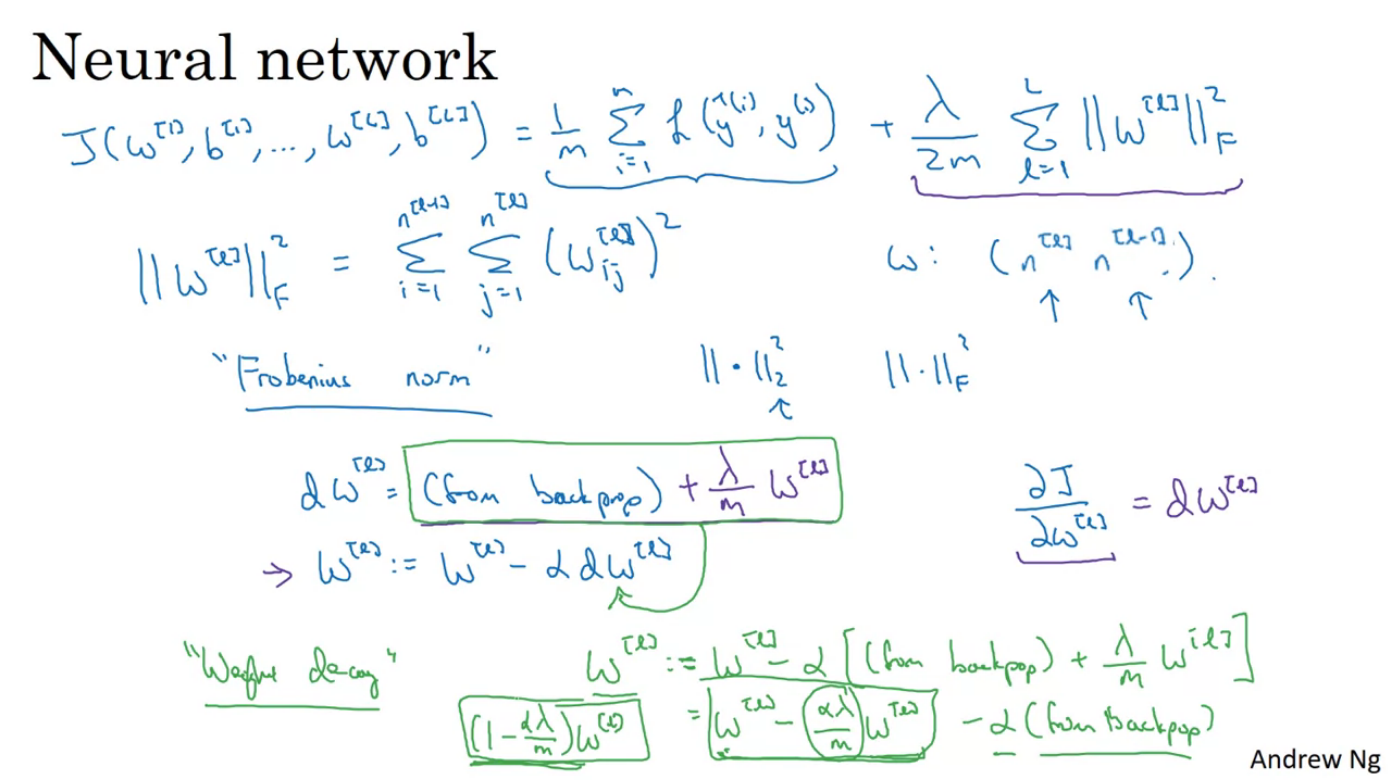 Neural network
J(w^[1], b^[1], ..., w^[L], b^[L]) = 1/m Σ_{i=1}^{n} L(ŷ^(i), y^(i)) + λ/2m Σ_{l=1}^{L} ||w^[l]||_F^2
||w^[l]||_F^2 = Σ_{i=1}^{n^[l-1]} Σ_{j=1}^{n^[l]} (w_ij^[l])^2 w: (n^[l] n^[l-1]).
↑ ↑
"Frobenius norm" ||·||_2^2 ||·||_F^2
↑
dw^[l] = (from backprop) + λ/m w^[l] ∂J/∂w^[l] = dw^[l]
→ w^[l] := w^[l] - α dw^[l]
"Weight decay" w^[l] := w^[l] - α [(from backpop) + λ/m w^[l]]
(1 - αλ/m) w^[l] = w^[l] - αλ/m w^[l] - α (from backpop)
Andrew Ng